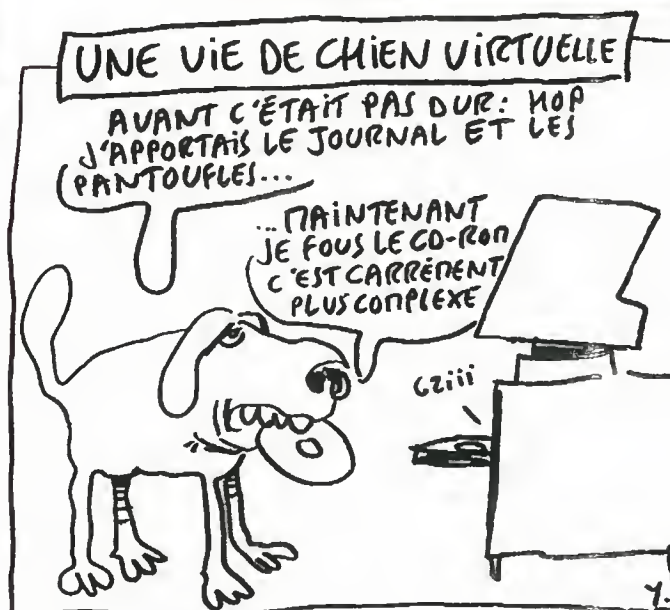 UNE VIE DE CHIEN VIRTUELLE
AVANT C'ÉTAIT PAS DUR: HOP
J'APPORTAIS LE JOURNAL ET LES
PANTOUFLES...
...MAINTENANT
JE FOUS LE CD-ROM
C'EST CARRÉMENT
PLUS COMPLEXE
GZiii
Y.